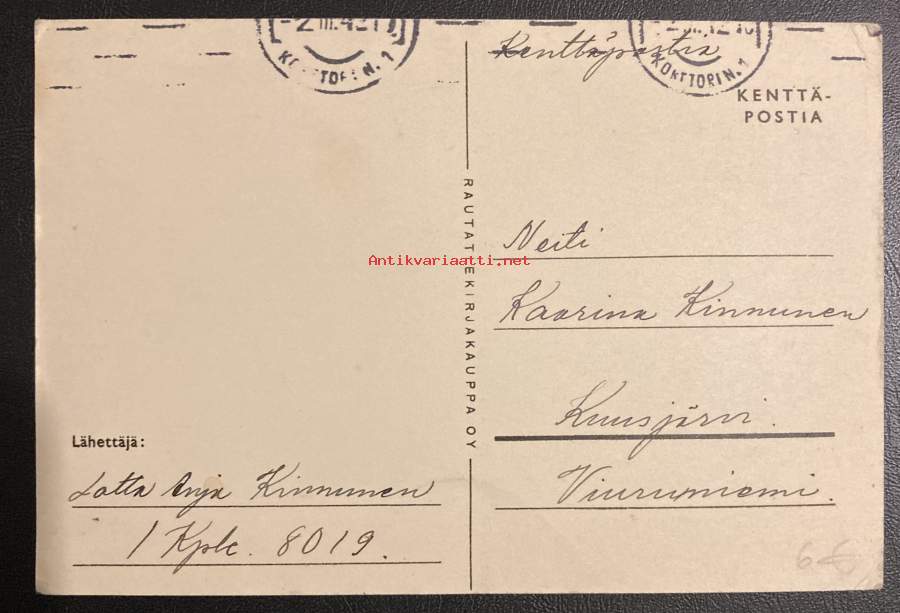 -2.III.42
KONTTORI N. 1
KONTTORI N. 1
Kenttäpostia
KENTTÄ-
POSTIA
Neiti
Antikvariaatti.net
Kaarina Kinnunen
RAUTATIEKIRJAKAUPPA OY
Kuusjärvi.
Viuruniemi.
Lähettäjä:
Lotta Anja Kinnunen
1 Kplc. 8019.
6€